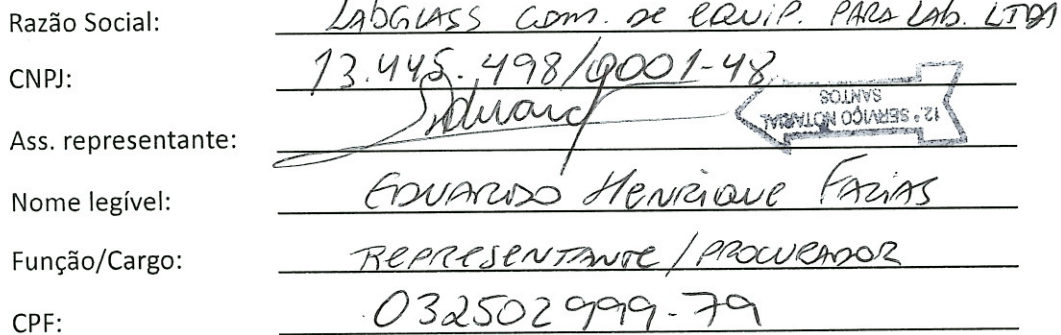 Razão Social: LABGLASS COM. DE EQUIP. PARA LAB. LTDA
CNPJ: 13.445.498/0001-48
Ass. representante: Eduard
12.º SERVIÇO NOTARIAL
SANTOS
Nome legível: EDUARDO HENRIQUE FARIAS
Função/Cargo: REPRESENTANTE/PROCURADOR
CPF: 032502999-79